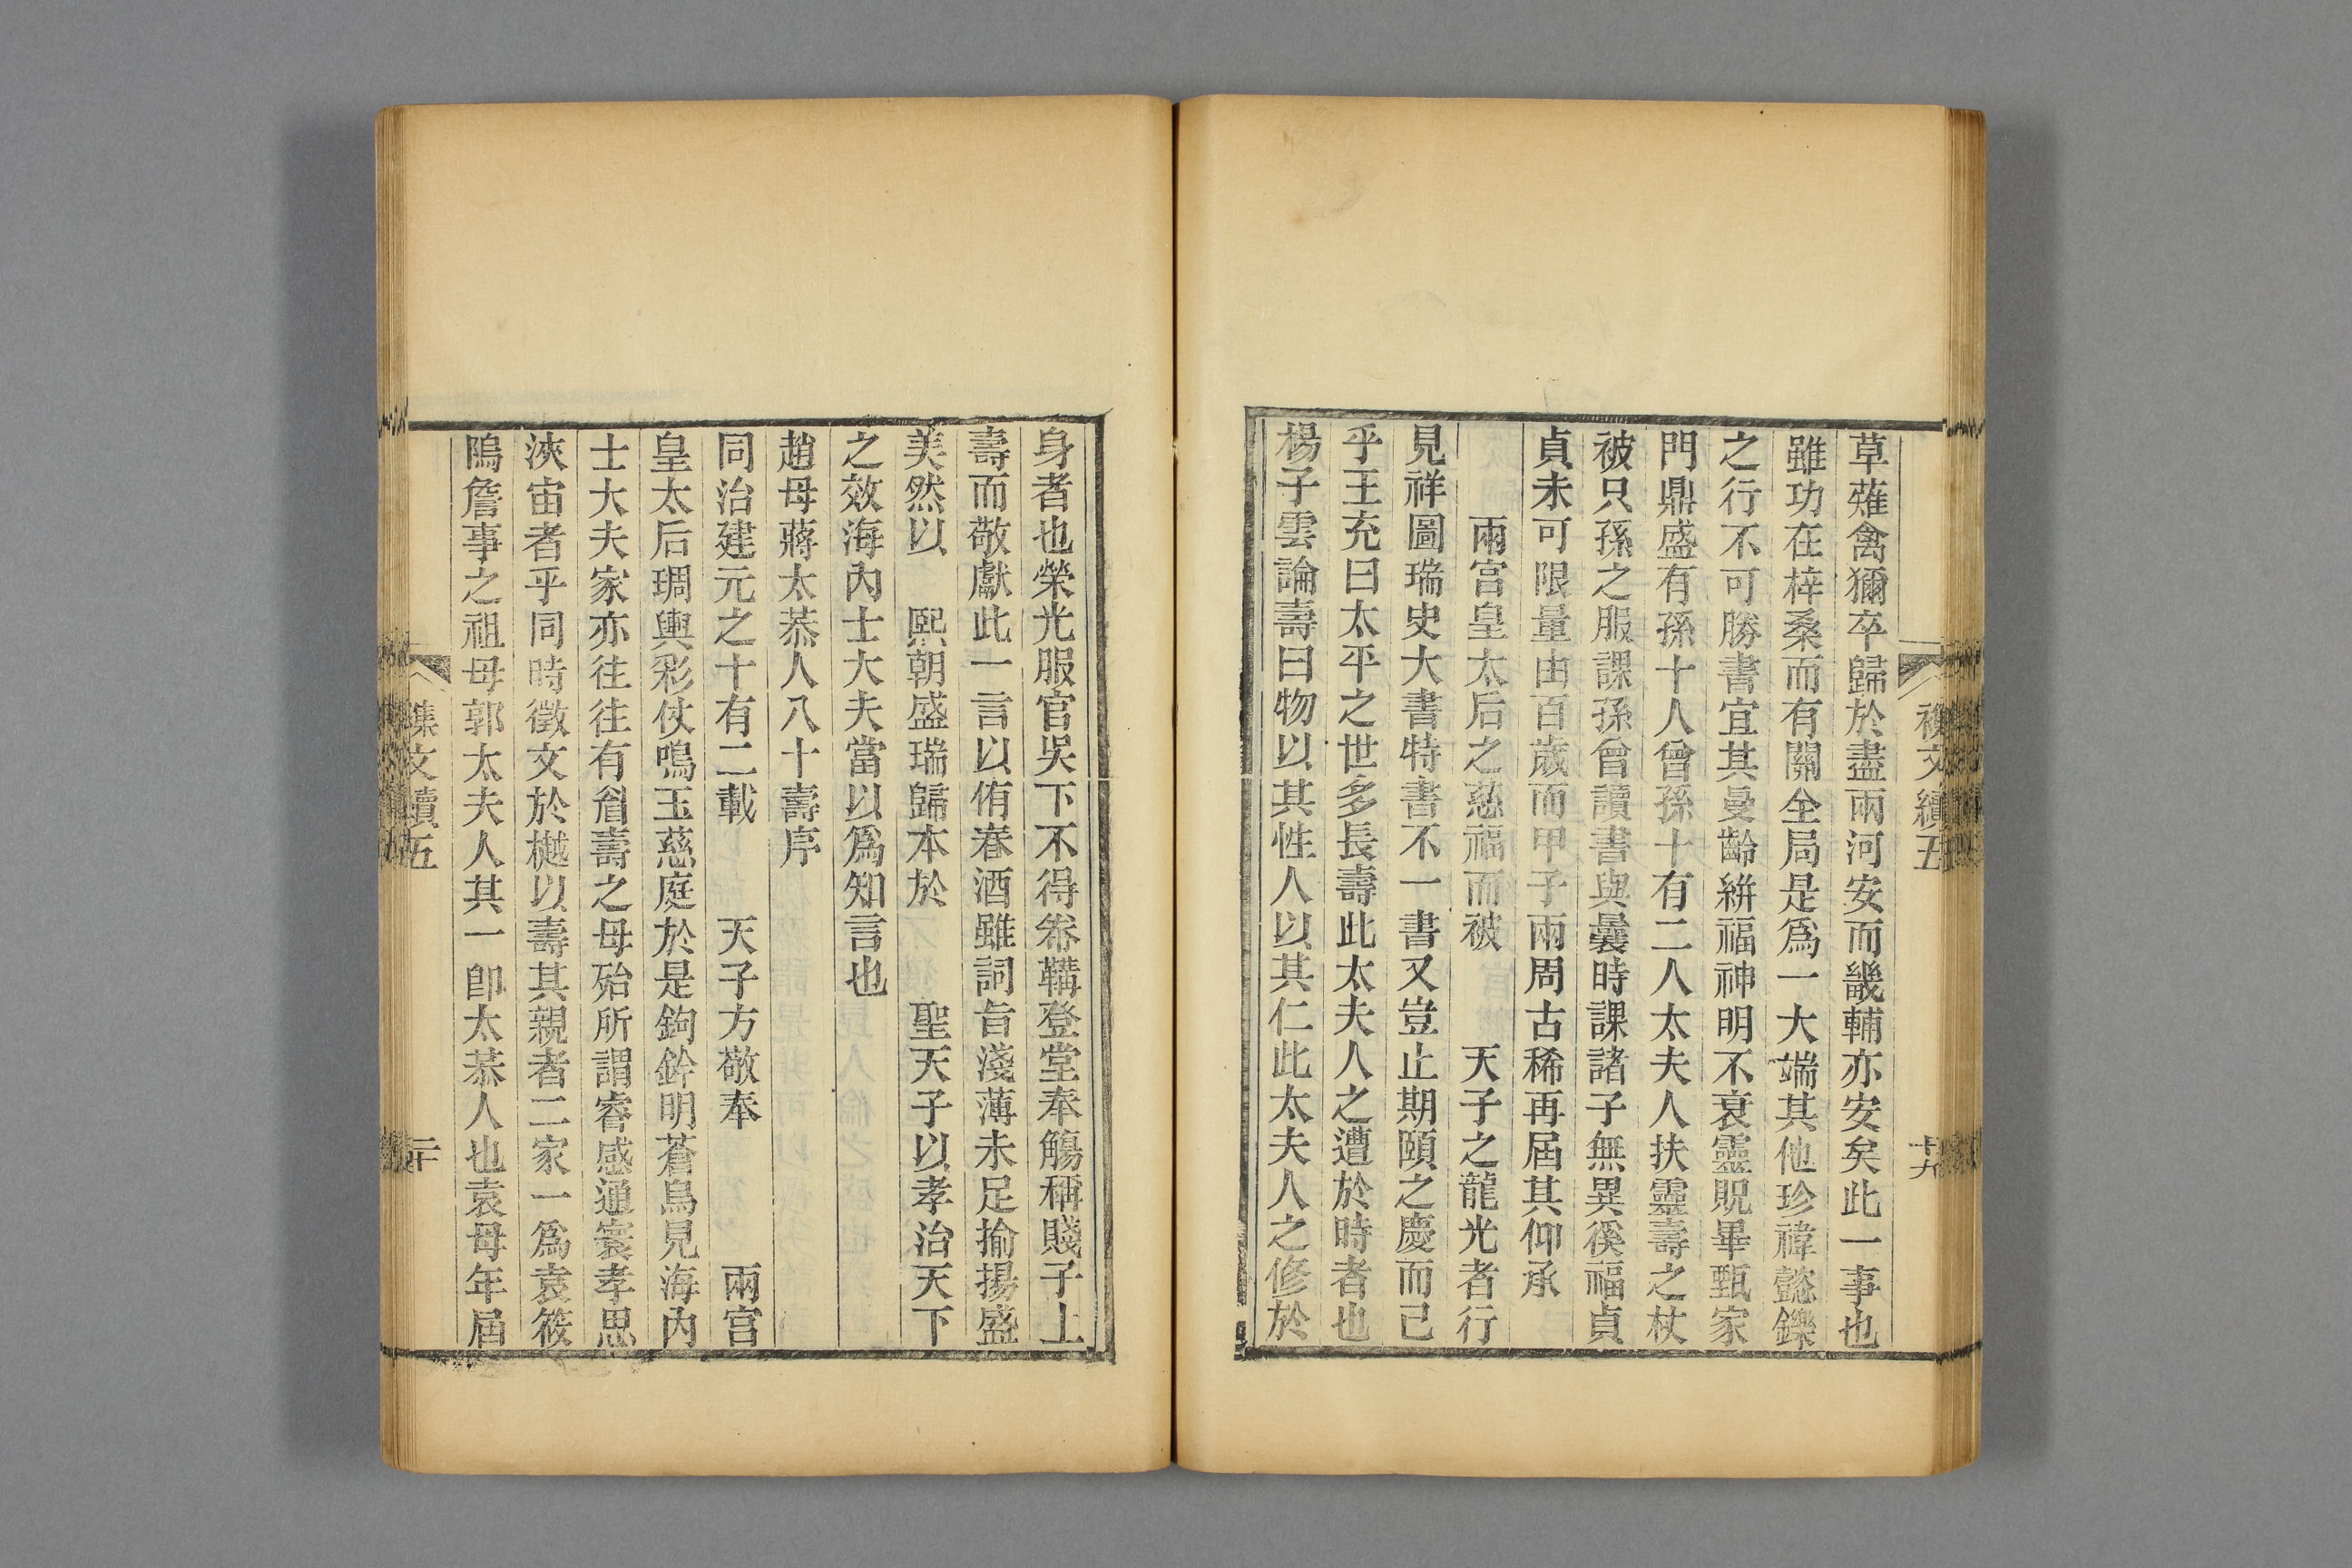 草薙禽獮卒歸於盡兩河安而畿輔亦安矣此一事也
雖功在梓桑而有關全局是爲一大端其他珍禕懿鑠
之行不可勝書宜其曼齡絣福神明不衰靈貺畢甄家
門鼎盛有孫十人曾孫十有二人太夫人扶靈壽之杖
被只孫之服課孫曾讀書與曩時課諸子無異徯福貞
貞未可限量由百歲而甲子兩周古稀再屆其仰承
兩宮皇太后之慈福而被　天子之龍光者行
見祥圖瑞史大書特書不一書又豈止期頤之慶而已
乎王充曰太平之世多長壽此太夫人之遭於時者也
楊子雲論壽曰物以其性人以其仁此太夫人之修於
文續五
十九
身者也榮光服官吳下不得帣鞲登堂奉觴稱賤子上
壽而敬獻此一言以侑春酒雖詞旨淺薄未足揄揚盛
美然以　熙朝盛瑞歸本於　聖天子以孝治天下
之效海內士大夫當以爲知言也
趙母蔣太恭人八十壽序
同治建元之十有二載　天子方敬奉　兩宮
皇太后琱輿彩仗鳴玉慈庭於是鉤鈐明蒼烏見海內
士大夫家亦往往有眉壽之母殆所謂睿感通寰孝思
浹宙者乎同時徵文於樾以壽其親者二家一爲袁筱
隖詹事之祖母郭太夫人其一卽太恭人也袁母年屆
文續五
二十